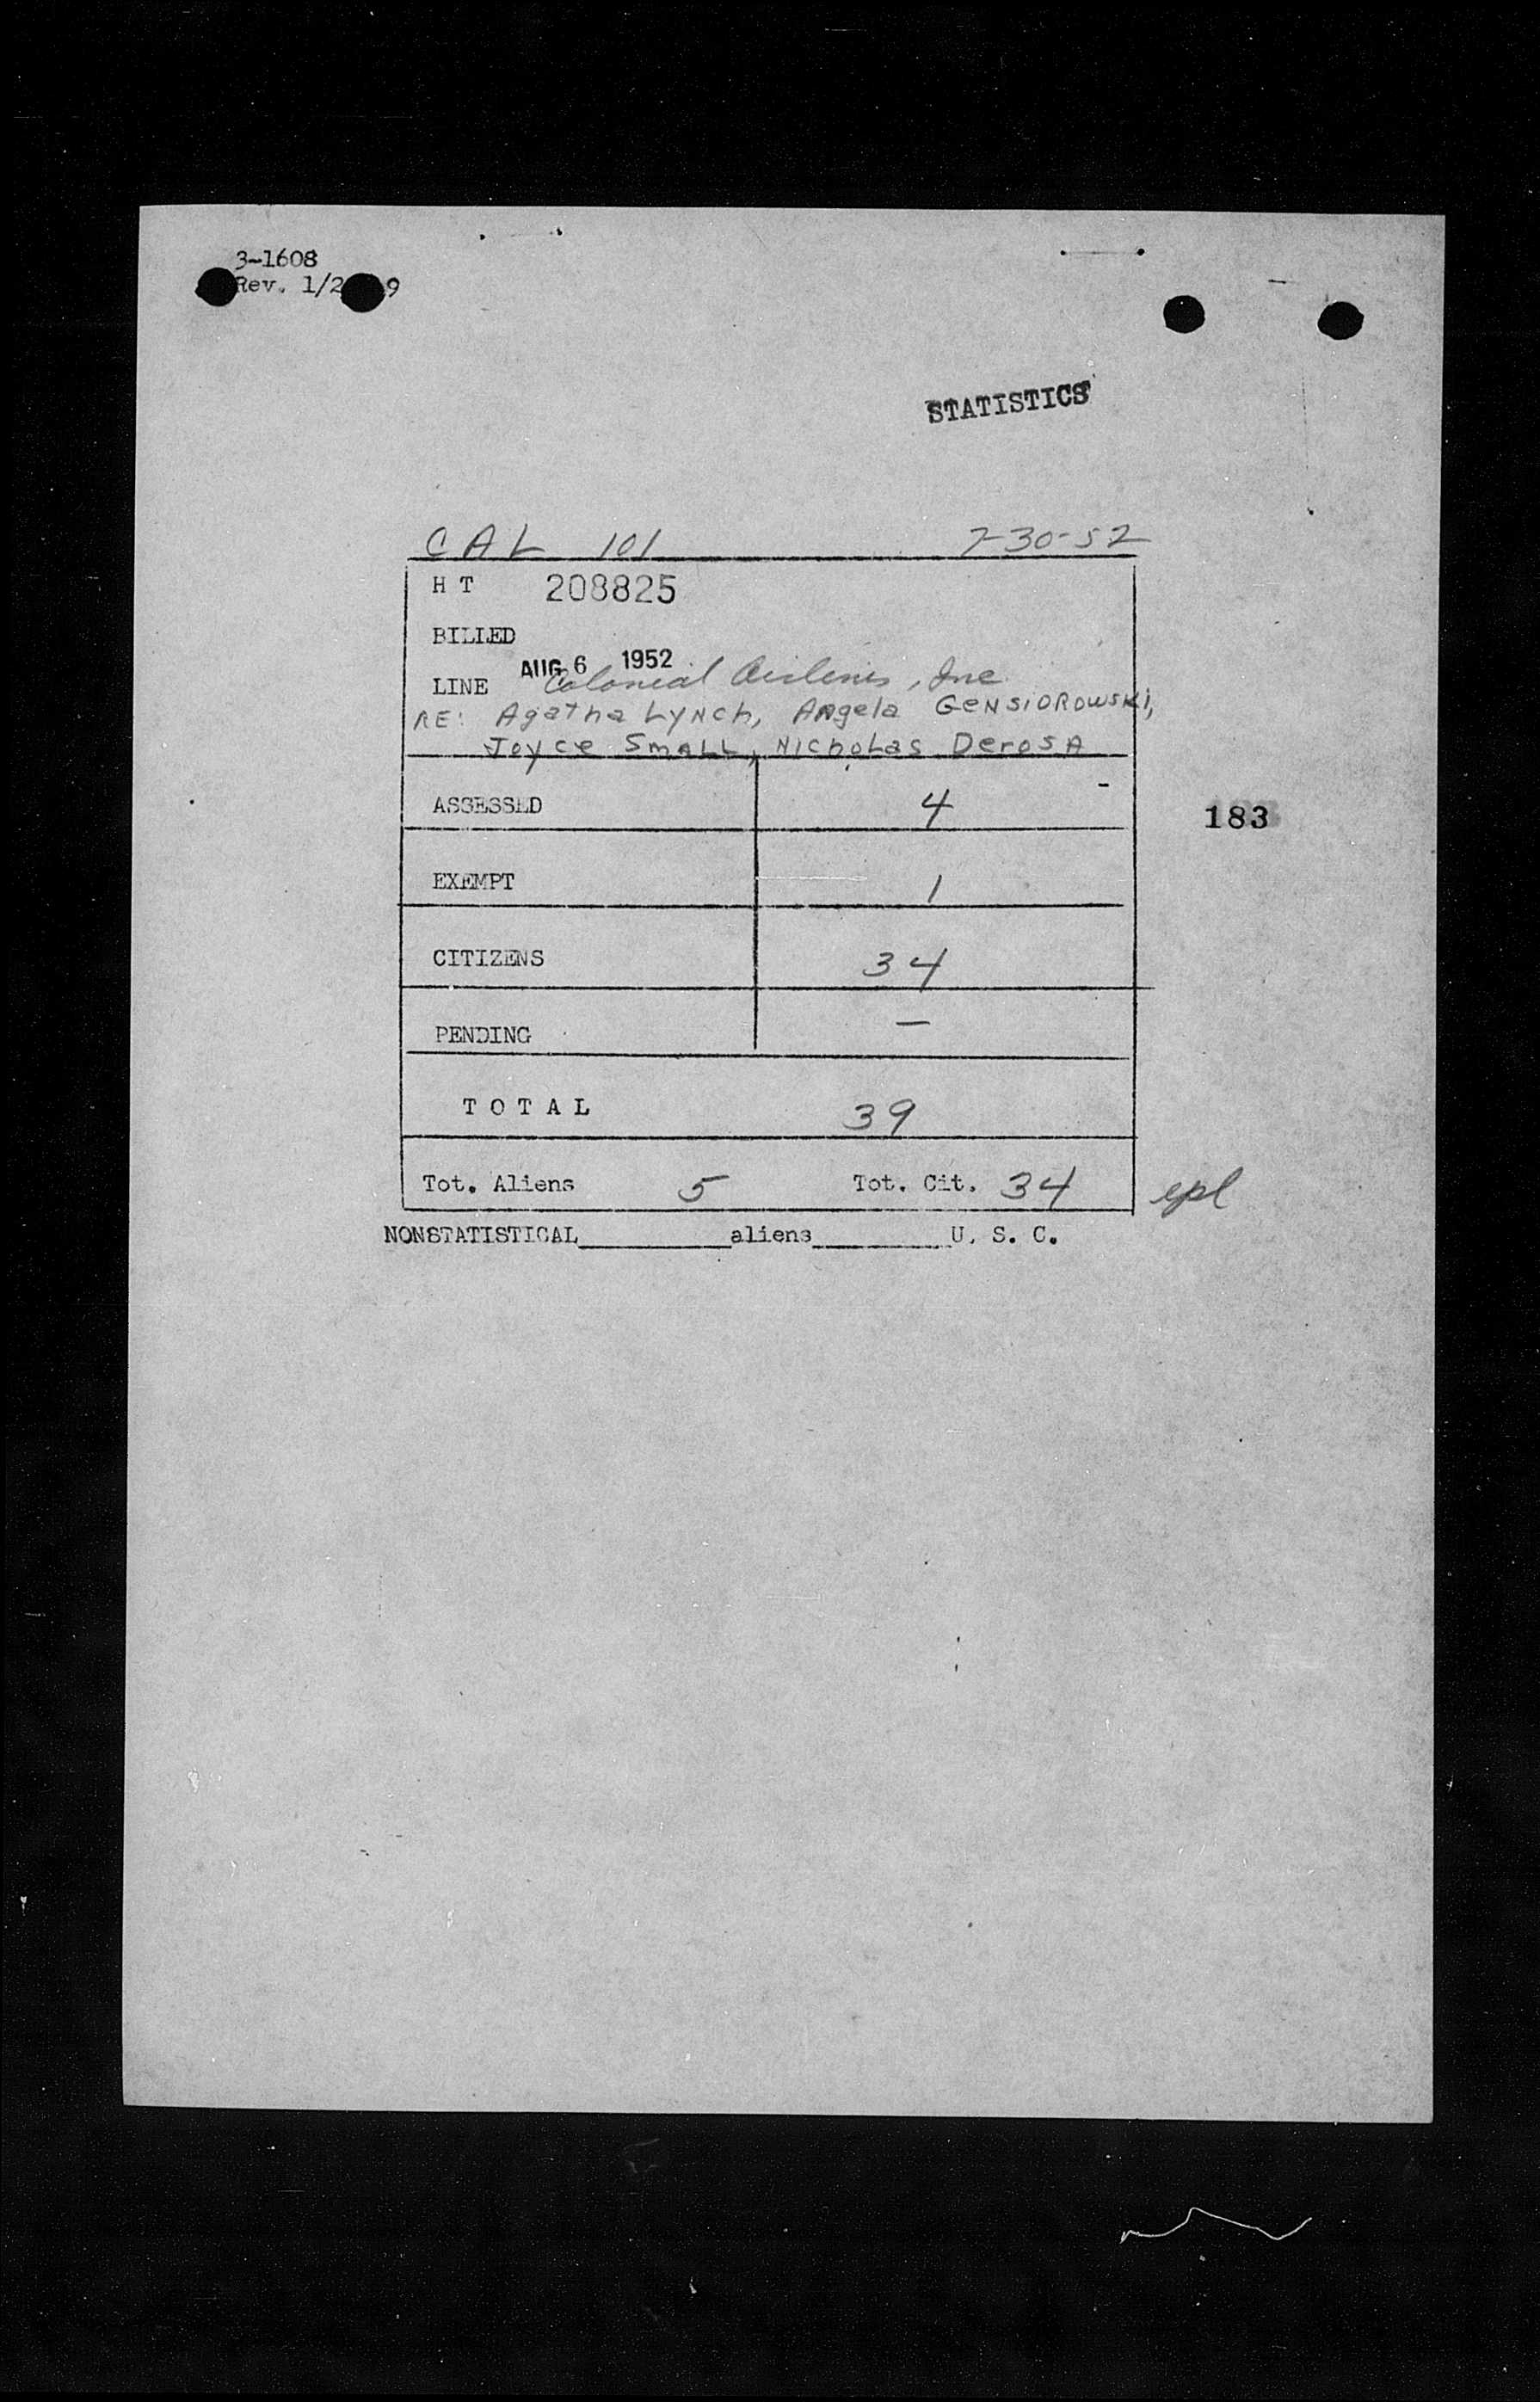 3-1608
Rev. 1/2 9
STATISTICS
CAL 101 7-30-52
H T 208825
BILLED
AUG 6 1952
LINE Colonial Airlines, Inc
RE: Agatha Lynch, Angela GENSIOROWSKI,
Joyce SMALL, Nicholas Derosa
ASSESSED 4
183
EXEMPT 1
CITIZENS 34
PENDING —
T O T A L 39
Tot. Aliens 5 Tot. Cit. 34 epl
NONSTATISTICAL________aliens________U. S. C.